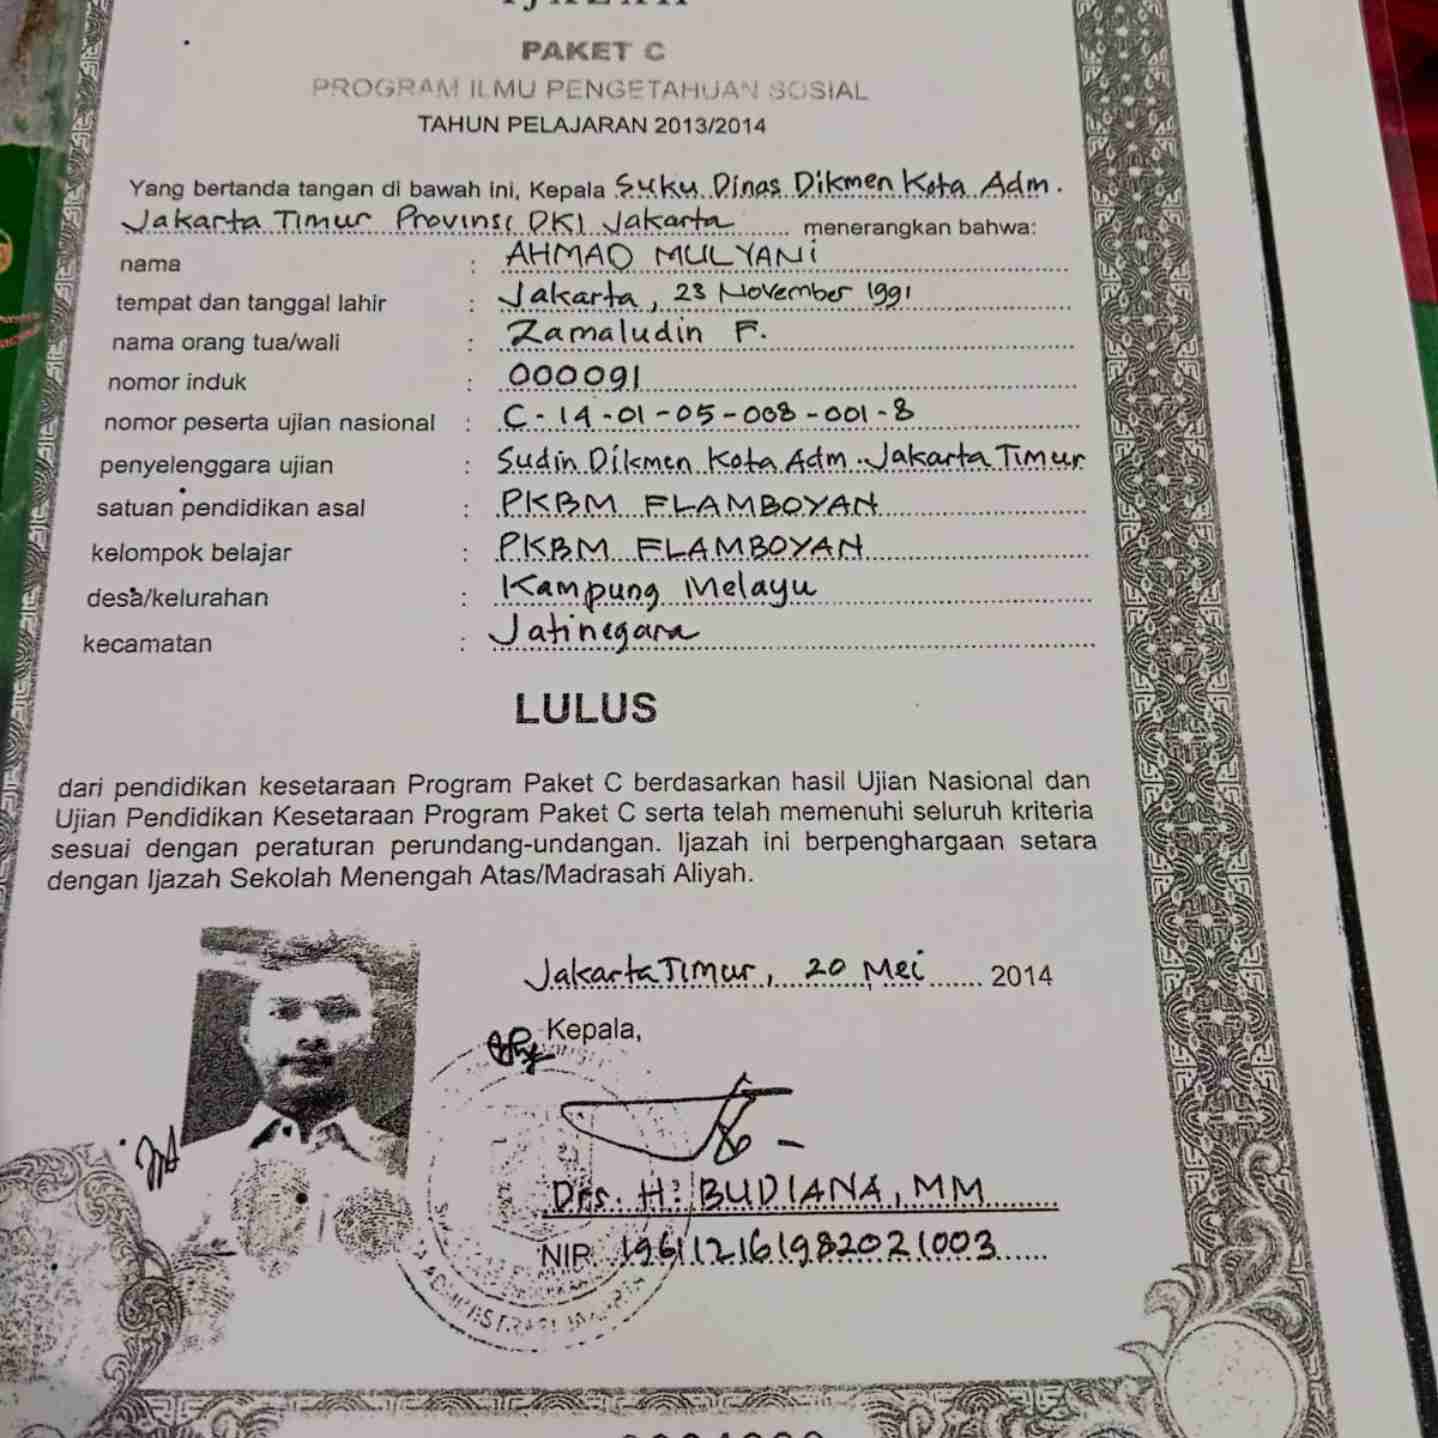 IJAZAH
PAKET C
PROGRAM ILMU PENGETAHUAN SOSIAL
TAHUN PELAJARAN 2013/2014
Yang bertanda tangan di bawah ini, Kepala Suku Dinas Dikmen Kota Adm.
Jakarta Timur Provinsi DKI Jakarta menerangkan bahwa:
nama : AHMAD MULYANI
tempat dan tanggal lahir : Jakarta, 23 November 1991
nama orang tua/wali : Zamaludin F.
nomor induk : 000091
nomor peserta ujian nasional : C-14-01-05-008-001-8
penyelenggara ujian : Sudin Dikmen Kota Adm. Jakarta Timur
satuan pendidikan asal : PKBM FLAMBOYAN
kelompok belajar : PKBM FLAMBOYAN
desa/kelurahan : Kampung Melayu
kecamatan : Jatinegara
LULUS
dari pendidikan kesetaraan Program Paket C berdasarkan hasil Ujian Nasional dan
Ujian Pendidikan Kesetaraan Program Paket C serta telah memenuhi seluruh kriteria
sesuai dengan peraturan perundang-undangan. Ijazah ini berpenghargaan setara
dengan Ijazah Sekolah Menengah Atas/Madrasah Aliyah.
Jakarta Timur, 20 Mei 2014
Kepala,
Drs. H. BUDIANA, MM
NIP. 196112161982021003